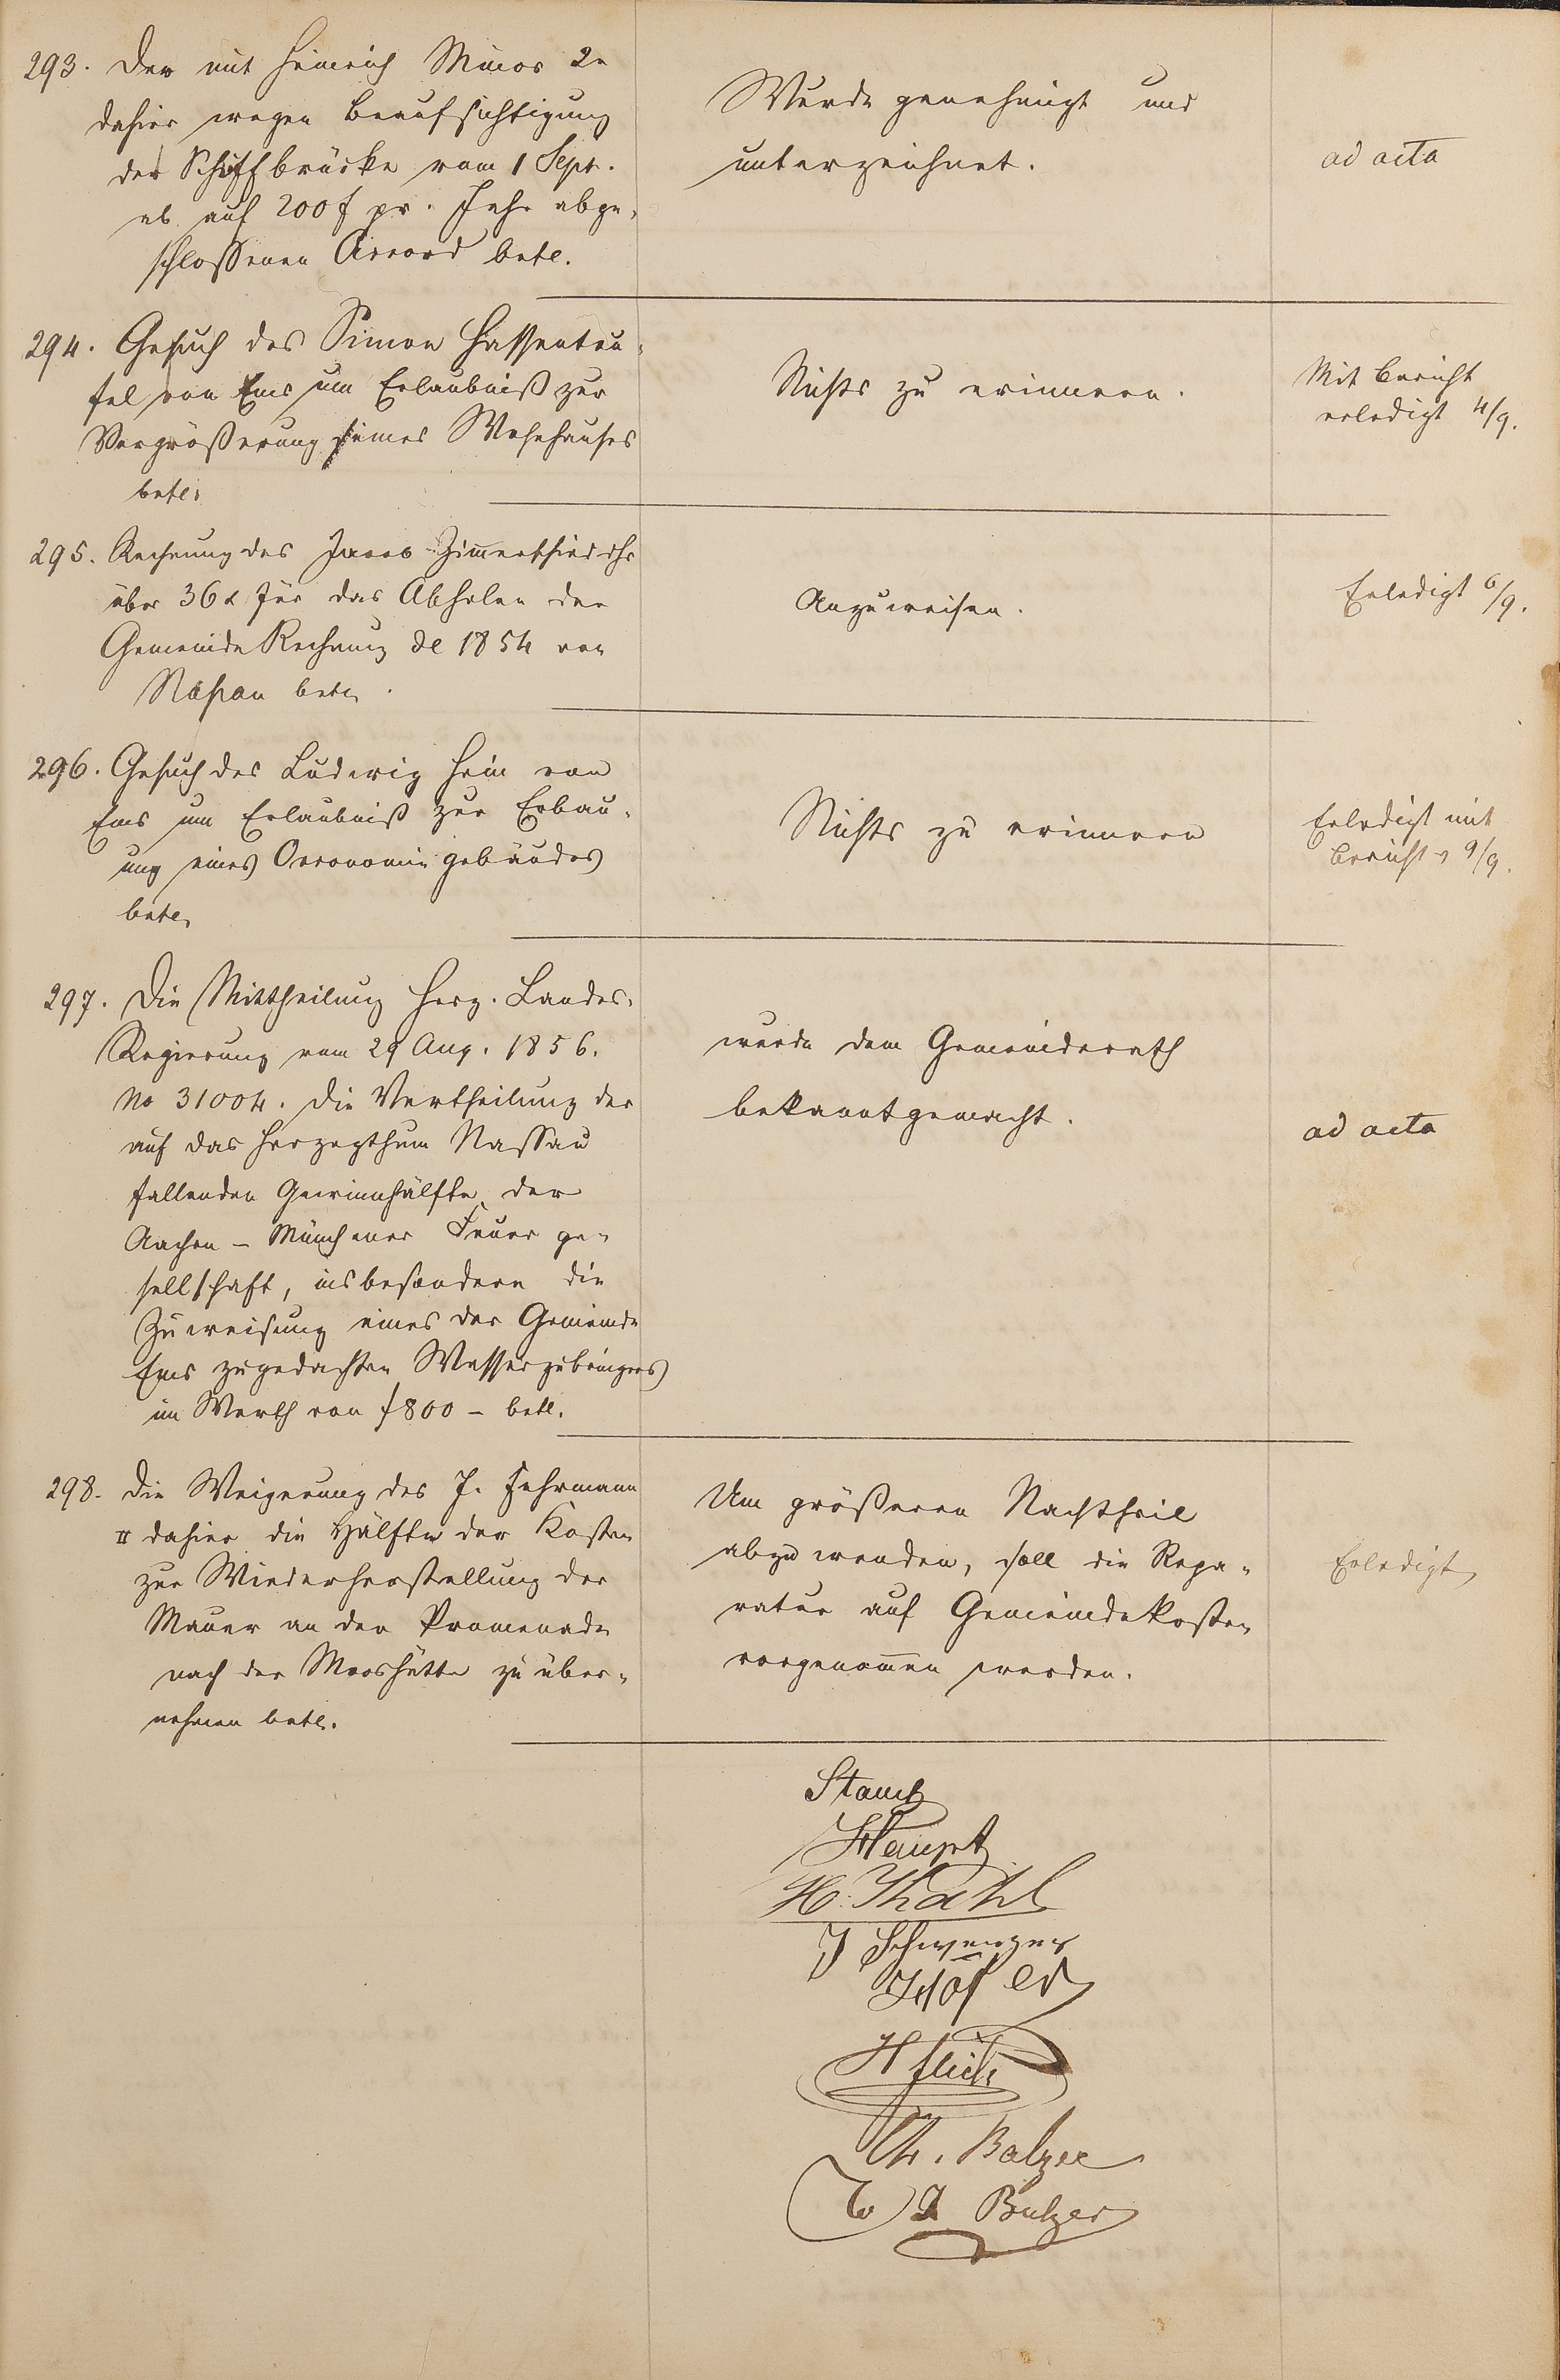 293. Der mit Heinrich Minor 2r
dahier wegen Beaufsichtigung
der Schiffbrücke vom 1 Sept.
ab auf 200 f pr. Jahr abge-
schlossenen Accord betr.
Wurde genehmigt und
unterzeichnet.
ad acta
294. Gesuch des Simon Hassenteu-
fel von Ems um Erlaubniß zur
Vergrößerung seines Wohnhauses
betr.
Nichts zu erinnern.
Mit Bericht
erledigt 4/9.
295. Rechnung des Jacob
über 36 x für das Abholen der
Gemeinde Rechnung de 1854 von
Nassau betr.
Anzuweisen.
Erledigt 6/9.
296. Gesuch des Ludwig Heim von
Ems um Erlaubniß zur Erbau-
ung eines Oeconomiegebäudes
betr.
Nichts zu erinnern
Erledigt mit
Bericht v 9/9.
297. Die Mittheilung Herz. Landes-
Regierung vom 29 Aug. 1856.
No 31004. die Vertheilung der
auf das Herzogthum Nassau
fallenden Gewinnhälfte der
Aachen - Münchener Feuer ge-
sellschaft, insbesondere die
Zuweisung eines der Gemeinde
Ems zugedachten Wasserzubringers
im Werth von f 800 - betr.
wurde dem Gemeinderath
bekannt gemacht.
ad acta
298. die Weigerung des J. Fuhrmann
II dahier die Hälfte der Kosten
zur Wiederherstellung der
Mauer an der Promenade
nach der Mooshütte zu über-
nehmen betr.
Um größeren Nachtheil
abzuwenden, soll die Repa-
ratur auf Gemeindekosten
vorgenommen werden.
Erledigt
Stauch
Haupt
H. Thahl
J Schwenzer
Hofer
H Flick
Ch. Balzer
W J Balzer